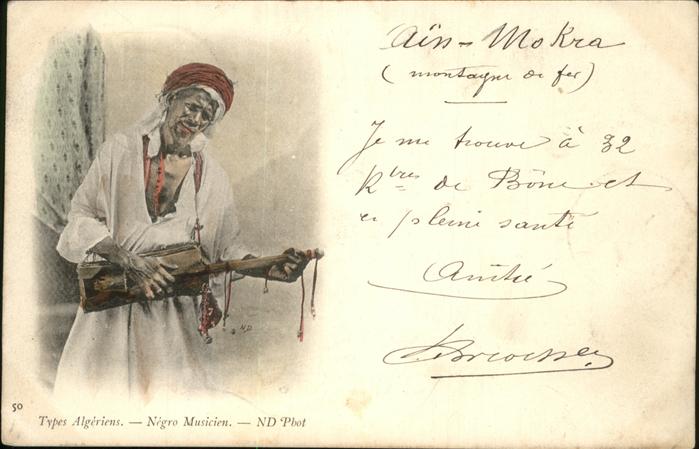 Aïn-Mokra
(montagne de fer)
Je me trouve à 32
Ktres de Bône et
en pleine santé
Amitié
50
Types Algériens. — Négro Musicien. — ND Phot
ND